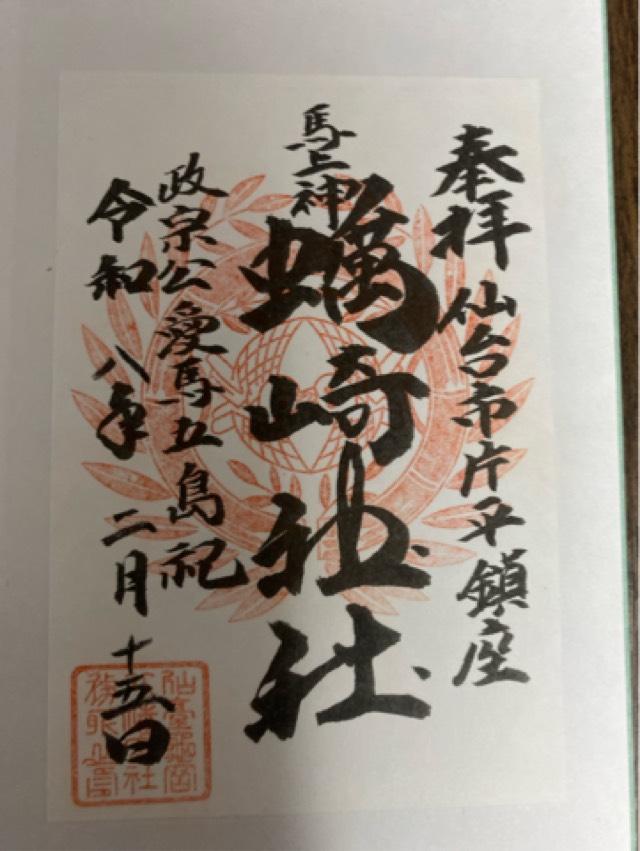 奉拝 仙台市片平鎮座
馬上神
蠣崎神社
政宗公愛馬五島祀
令和八年二月十五日